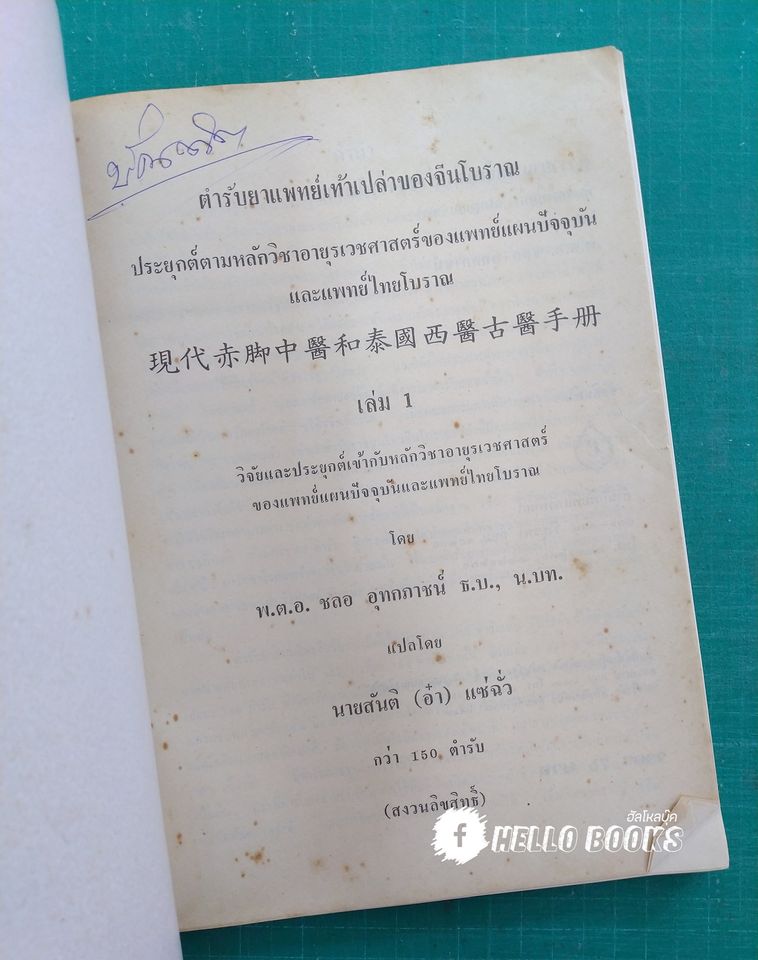 ตำรับยาแพทย์เท้าเปล่าของจีนโบราณ
ประยุกต์ตามหลักวิชาอายุรเวชศาสตร์ของแพทย์แผนปัจจุบัน
และแพทย์ไทยโบราณ
現代赤脚中醫和泰國西醫古醫手册
เล่ม 1
วิจัยและประยุกต์เข้ากับหลักวิชาอายุรเวชศาสตร์
ของแพทย์แผนปัจจุบันและแพทย์ไทยโบราณ
โดย
พ.ต.อ. ชลอ อุทกภาชน์ ธ.บ., น.บท.
แปลโดย
นายสันติ (อ๋า) แซ่ฉั่ว
กว่า 150 ตำรับ
(สงวนลิขสิทธิ์)
ฮัลโหลบุ๊ค
f HELLO BOOKS